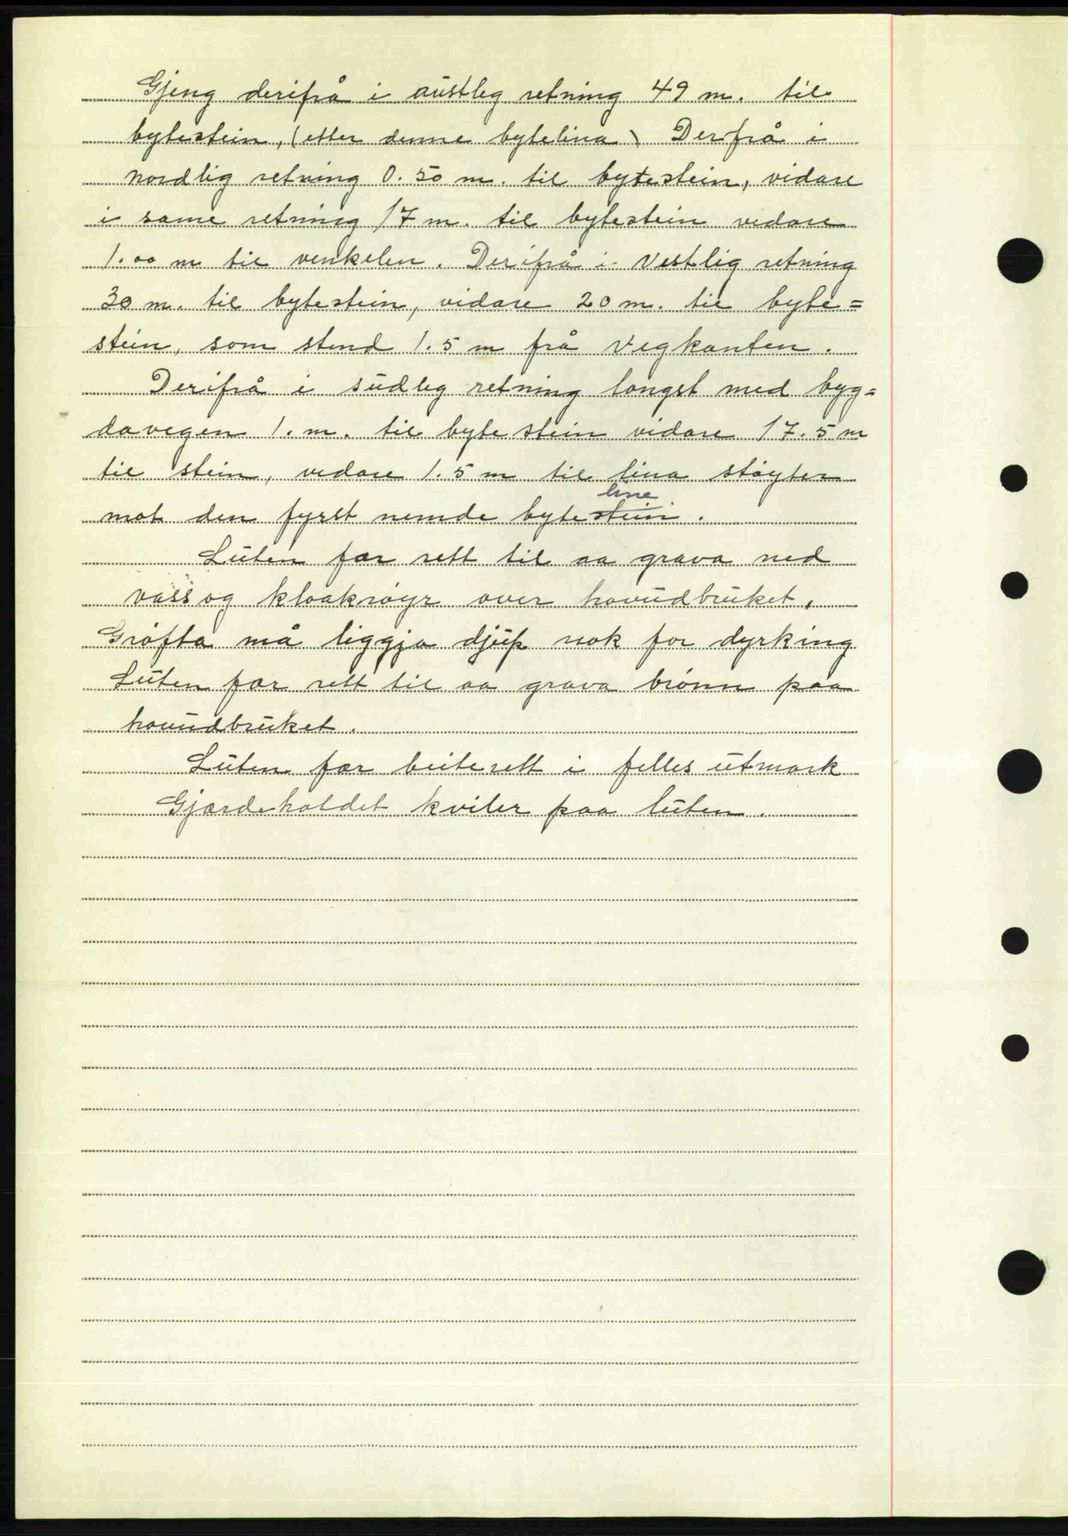 Gjeng derifrå i austleg retning 49 m. til
bytestein, (etter denne bytelina) Derfrå i
nordlig retning 0.50 m. til bytestein, vidare
i same retning 17 m. til bytestein vidare
1.00 m til venkelen. Derifrå i vestlig retning
30 m. til bytestein, vidare 20 m. til byte=
stein, som stend 1.5 m frå vegkanten.
Derifrå i sudleg retning langst med byg=
davegen 1. m. til bytestein vidare 17.5 m
til stein, vidare 1.5 m til lina støyter
line
mot den fyrst nemde bytestein.
Luten fær rett til aa grava ned
vass og kloakrøyr over hovudbruket,
Grøfta må liggja djup nok for dyrking
Luten fær rett til aa grava brønn paa
hovudbruket.
Luten fær beiterett i felles utmark
Gjærdeholdet kviler paa luten.